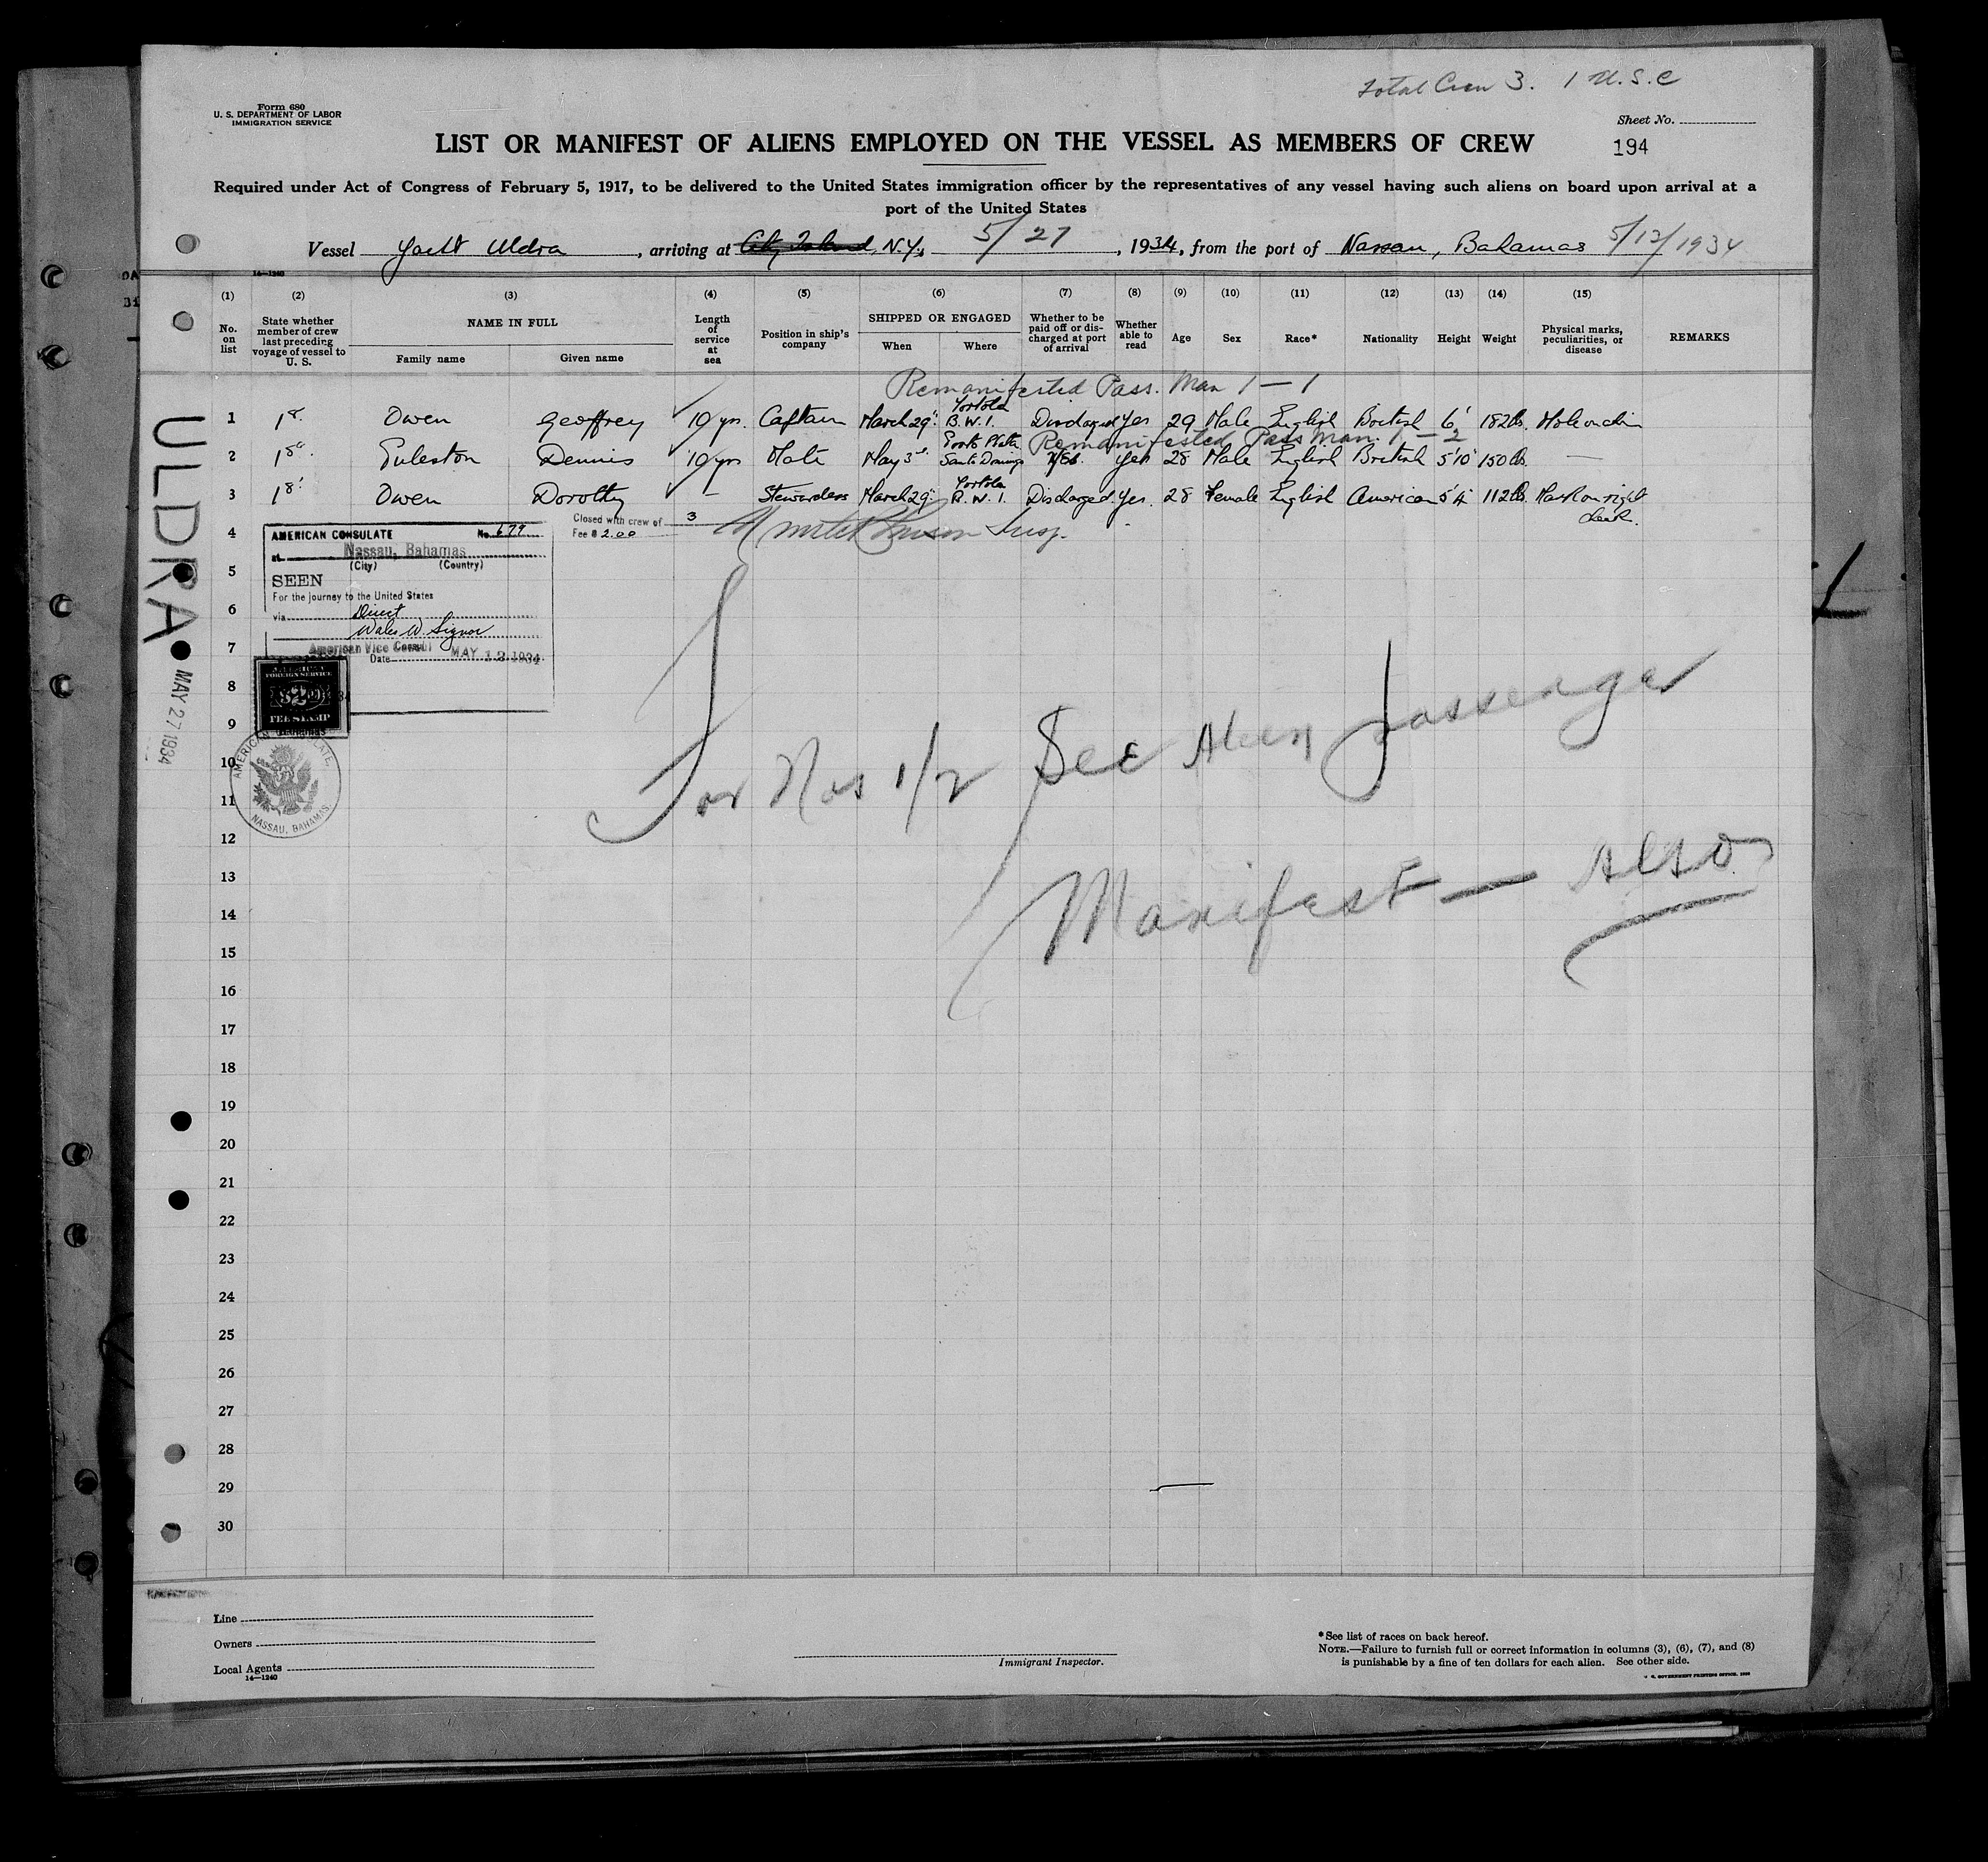 Total Crew 3. 1 U.S.C
Form 680
U. S. DEPARTMENT OF LABOR
IMMIGRATION SERVICE
Sheet No.
LIST OR MANIFEST OF ALIENS EMPLOYED ON THE VESSEL AS MEMBERS OF CREW
194
Required under Act of Congress of February 5, 1917, to be delivered to the United States immigration officer by the representatives of any vessel having such aliens on board upon arrival at a
port of the United States
Vessel Yacht Uldra, arriving at City Island, N.Y., 5/27, 1934, from the port of Nassau, Bahamas 5/12/1934
14-1240
(1) (2) (3) (4) (5) (6) (7) (8) (9) (10) (11) (12) (13) (14) (15)
No. on list
State whether member of crew last preceding voyage of vessel to U. S.
NAME IN FULL
Family name Given name
Length of service at sea
Position in ship's company
SHIPPED OR ENGAGED
When Where
Whether to be paid off or discharged at port of arrival
Whether able to read
Age Sex Race* Nationality Height Weight
Physical marks, peculiarities, or disease
REMARKS
Remanifested Pass. Man 1 — 1
1 Owen Geoffrey 10 yrs. Captain March 29th Tortola B.W.I. Discharged Yes 29 Male English British 6' 182 lbs. Mole on chin
Remanifested Pass Man. 1 — 2
2 Puleston Dennis 10 yrs Mate May 3rd Porto Plata Santo Domingo Yes 28 Male English British 5'10" 150 lbs. —
3 Owen Dorothy - Stewardess March 29th Tortola B.W.I. Discharged Yes. 28 Female English American 5'4" 112 lbs. Mark on right cheek.
Closed with crew of 3
Fee $ 2.00
Insp.
AMERICAN CONSULATE No. 679
at Nassau, Bahamas
(City) (Country)
SEEN
For the journey to the United States
via Direct
Wales W. Signor
American Vice Consul
Date MAY 12 1934
FOREIGN SERVICE
$2
FEE STAMP
NASSAU, BAHAMAS
ULDRA
MAY 27 1934
For Nos 1/2 See Alien passenger
Manifest — Also
4
5
6
7
8
9
10
11
12
13
14
15
16
17
18
19
20
21
22
23
24
25
26
27
28
29
30
Line
Owners
Local Agents
14-1240
Immigrant Inspector.
*See list of races on back hereof.
NOTE.—Failure to furnish full or correct information in columns (3), (6), (7), and (8)
is punishable by a fine of ten dollars for each alien. See other side.